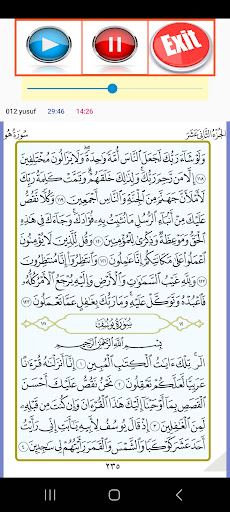 Exit
012 yusuf 29:46 14:26
الجزء الثاني عشر سورة هود
وَلَوْ شَآءَ رَبُّكَ لَجَعَلَ ٱلنَّاسَ أُمَّةً وَٰحِدَةً وَلَا يَزَالُونَ مُخْتَلِفِينَ
١١٨ إِلَّا مَن رَّحِمَ رَبُّكَ وَلِذَٰلِكَ خَلَقَهُمْ وَتَمَّتْ كَلِمَةُ رَبِّكَ
لَأَمْلَأَنَّ جَهَنَّمَ مِنَ ٱلْجِنَّةِ وَٱلنَّاسِ أَجْمَعِينَ ١١٩ وَكُلًّا نَّقُصُّ
عَلَيْكَ مِنْ أَنۢبَآءِ ٱلرُّسُلِ مَا نُثَبِّتُ بِهِۦ فُؤَادَكَ وَجَآءَكَ فِى هَٰذِهِ
ٱلْحَقُّ وَمَوْعِظَةٌ وَذِكْرَىٰ لِلْمُؤْمِنِينَ ١٢٠ وَقُل لِّلَّذِينَ لَا يُؤْمِنُونَ
ٱعْمَلُوا۟ عَلَىٰ مَكَانَتِكُمْ إِنَّا عَٰمِلُونَ ١٢١ وَٱنتَظِرُوٓا۟ إِنَّا مُنتَظِرُونَ
١٢٢ وَلِلَّهِ غَيْبُ ٱلسَّمَٰوَٰتِ وَٱلْأَرْضِ وَإِلَيْهِ يُرْجَعُ ٱلْأَمْرُ كُلُّهُۥ
فَٱعْبُدْهُ وَتَوَكَّلْ عَلَيْهِ وَمَا رَبُّكَ بِغَٰفِلٍ عَمَّا تَعْمَلُونَ ١٢٣
سُورَةُ يُوسُفَ
بِسْمِ ٱللَّهِ ٱلرَّحْمَٰنِ ٱلرَّحِيمِ
الٓر تِلْكَ ءَايَٰتُ ٱلْكِتَٰبِ ٱلْمُبِينِ ١ إِنَّآ أَنزَلْنَٰهُ قُرْءَٰنًا
عَرَبِيًّا لَّعَلَّكُمْ تَعْقِلُونَ ٢ نَحْنُ نَقُصُّ عَلَيْكَ أَحْسَنَ
ٱلْقَصَصِ بِمَآ أَوْحَيْنَآ إِلَيْكَ هَٰذَا ٱلْقُرْءَانَ وَإِن كُنتَ مِن قَبْلِهِۦ
لَمِنَ ٱلْغَٰفِلِينَ ٣ إِذْ قَالَ يُوسُفُ لِأَبِيهِ يَٰٓأَبَتِ إِنِّى رَأَيْتُ
أَحَدَ عَشَرَ كَوْكَبًا وَٱلشَّمْسَ وَٱلْقَمَرَ رَأَيْتُهُمْ لِى سَٰجِدِينَ ٤
٢٣٥